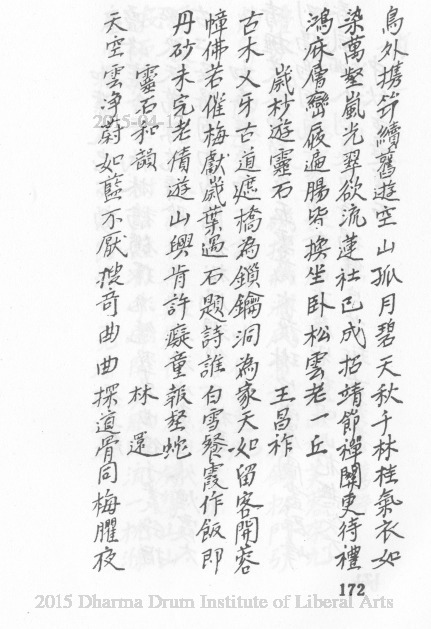 鳥外携筇續舊遊空山孤月碧天秋千林桂氣衣如
染萬壑嵐光翠欲流蓮社已成招靖節禪關更待禮
鴻麻膚巒屐遍腸皆換坐卧松雲老一丘
歲杪遊靈石　王昌祚
古木乂牙古道遮橋為鎖鑰洞為家天如留客開蓉
幛佛若催梅獻歲葉過石題詩誰白雪餐霞作飯即
丹砂未完老債遊山興肯許癡童報蛰蛇
靈石和韻　林遲
天空雲净蔚如藍不厭搜奇曲曲探道骨同梅臞夜
172
2015-04-17
2015 Dharma Drum Institute of Liberal Arts